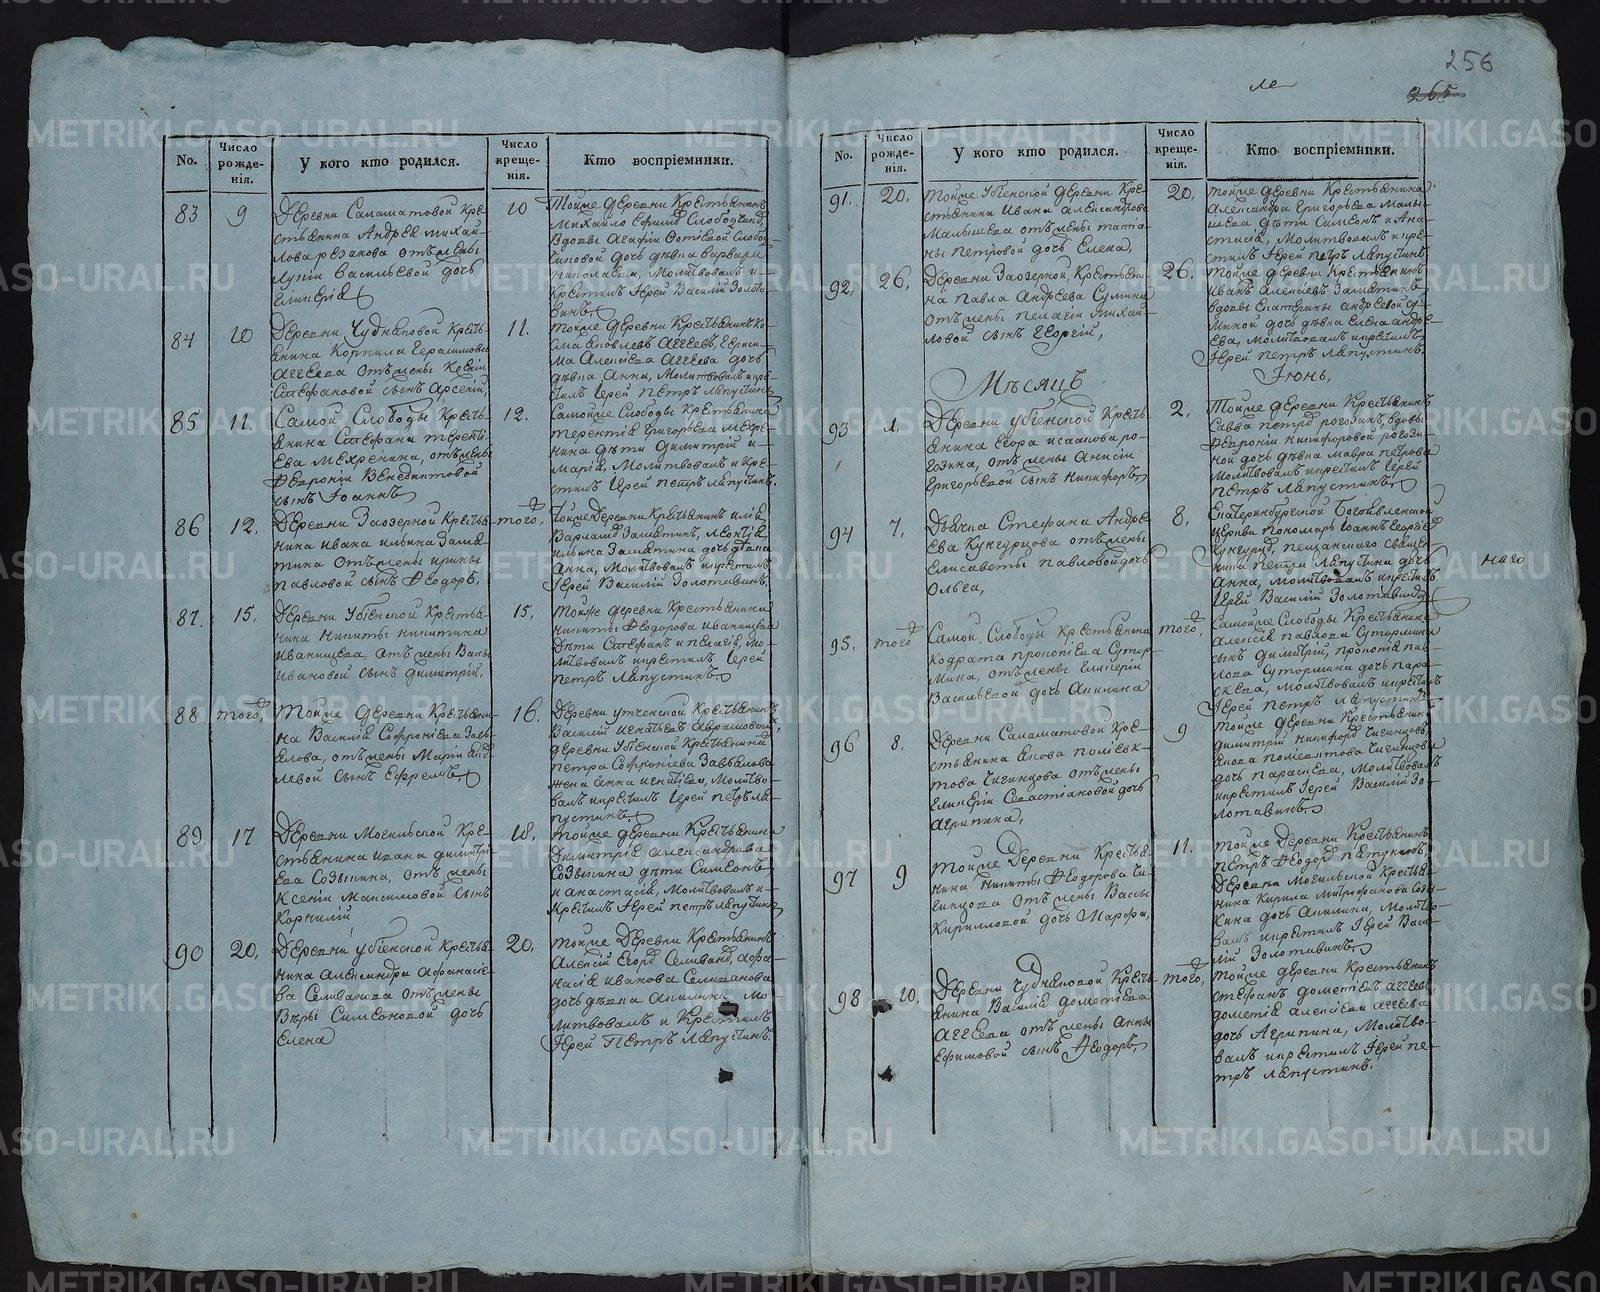 256
265
No.
Число рожде-нія.
У кого кто родился.
Число креще-нія.
Кто воспріемники.
83
9
Деревни Саламатовой Кре-
стьянина Андрея михай-
лова резанова отъ жены
Лупіи васильевой дочь
Гликерія
10
Тойже деревни Крестьянинъ
Михайло Ефимовъ Слободчиковъ,
Вдовы Агафіи Фотіевой Слобод-
чиковой дочь дѣвка варвара
николаева, Молитвовалъ и
Крестилъ Іерей Василій Золота-
винъ
84
10
Деревни Чудняковой Кресть-
янина Корнила Герасимова
Аггеева отъ жены Ксеніи
Стефановой сынъ Арсеній,
11.
Тойже деревни Крестьянинъ Ко-
сма Яковлевъ Аггеевъ, Гераси-
ма Алексіева Аггеева дочь
дѣвка Анна, Молитвовалъ и кре-
стилъ Іерей Петръ Ляпустинъ
85
11.
Самой Слободы Кресть-
янина Стефана Терентi-
ева Мехренина, отъ жены
Февроніи Венедиктовой
сынъ Іоаннъ
12.
Самойже Слободы Крестьянина
терентія Григорьева Мехре-
нина дѣти Димитрій и
Марія, Молитвовалъ и Кре-
стилъ Іерей Петръ Ляпустинъ
86
12.
Деревни Заозерной Крестья-
нина ивана ильина Замя-
тина отъ жены ирины
Павловой сынъ Феодоръ,
того,
Тойже Деревни Крестьянинъ илія
Варламовъ Замятинъ, Леонтія
ильина Замятина дочь дѣвка
Анна, Молитвовалъ и крестилъ
Іерей Василій Золотавинъ,
87.
15.
Деревни Убіенской Крестья-
нина Никиты никитина
Иванищева, отъ жены Вассы
Ивановой сынъ Димитрій,
15.
Тойже деревни Крестьянина
Никиты Феодорова Иванищева
Дѣти Стефанъ и Пелагія, Мо-
литвовалъ и крестилъ Іерей
Петръ Ляпустинъ
88
того,
Тойже деревни Крестьяни-
на Василія Софроніева Завь-
ялова, отъ жены Маріи
левой сынъ Ефремъ
16.
Деревни Крестьянинъ
Василій Игнатьевъ
Деревни Убіенской Крестьянина
Петра Софроніева Завьялова
жена Анна игнатіева, Молитво-
валъ и крестилъ Іерей Петръ Ля-
пустинъ
89.
17
Деревни Могильской Кре-
стьянина ивана димитрі-
ева Созыкина, отъ жены
Ксеніи Максимовой сынъ
Корнилій
18.
Тойже деревни Крестьянина
Димитрія Александрова
Созыкина дѣти Симеонъ
и Анастасія, Молитвовалъ и
Крестилъ Іерей Петръ Ляпустинъ
90
20.
Деревни Убіенской Крестья-
нина Александра Афанасіе-
ва Селиванова отъ жены
Вѣры Симеоновой дочь
Елена
20.
Тойже Деревни Крестьянинъ
Алексій Егоровъ Селивановъ, Афа-
насія иванова Селиванова
дочь дѣвка Акилина Мо-
литвовалъ и Крестилъ
Іерей Петръ Ляпустинъ.
No.
Число рожде-нія.
У кого кто родился.
Число креще-нія.
Кто воспріемники.
91.
20.
Тойже Убіенской деревни Кре-
стьянина Ивана Александрова
Малышева отъ жены татiа-
ны Петровой дочь Елена,
20,
Тойже деревни Крестьянина
Александра Григорьева Малы-
шева, дѣти Симеонъ и Ана-
стасія, Молитвовалъ и кре-
стилъ Іерей Петръ Ляпустинъ
92.
26.
Деревни Заозерной, Крестьяни-
на Павла Андреева Сумина
отъ жены Пелагіи Михай-
ловой сынъ Георгій,
26.
Тойже деревни Крестьянинъ
Иванъ Алексіевъ Замятинъ
вдовы Екатерины Андреевой Су-
миной дочь дѣвка Елена Андре-
ева, Молитвовалъ и крестилъ
Іерей Петръ Ляпустинъ,
Мѣсяцъ
Іюнь,
93
1.
Деревни Убіенской Кресть-
янина Егора исаакова ро-
гозина, отъ жены Анисіи
Григорьевой сынъ Никифоръ
2.
Тойже деревни Крестьянинъ
Савва Петровъ рогозинъ, вдовы
Февроніи Никифоровой рогози-
ной дочь дѣвка Мавра Петрова
Молитвовалъ и крестилъ Іерей
Петръ Ляпустинъ
94
7.
Дьячка Стефана Андре-
ева Кунгурцова отъ жены
Елисаветы Павловой дочь
Ольга,
8.
Екатеринбургской Богоявленской
Церкви Пономарь Іоаннъ Георгіевъ
Кунгуровъ, Пещанскаго Священ-
ника Петра Ляпустина дочь
Анна, Молитвовалъ и крестилъ
Іерей Василій Золотавинъ
95.
того
Самой Слободы Крестьянина
Кодрата Прокопіева Сутор-
мина, отъ жены Гликеріи
Васильевой дочь Акилина
того,
Самойже Слободы Крестьянина
Алексія Павлова Сутормина
сынъ Димитрій, Прокопія Пав-
лова Сутормина дочь Пара-
скева, Молитвовалъ и крестилъ
Іерей Петръ Ляпустинъ
96
8.
Деревни Саламатовой Кре-
стьянина Якова Поліевк-
това Чигинцова отъ жены
Гликеріи Севастіановой дочь
Агрипина,
9
Тойже деревни Крестьянинъ
Димитрій Никифоровъ Чигинцовъ,
Якова Чигинцова
дочь Параскева, Молитвовалъ
и крестилъ Іерей Василій Зо-
лотавинъ
97
9
Тойже Деревни Крестья-
нина Никиты Феодорова Чи-
гинцова отъ жены Вассы
Кирилловой дочь Марфа,
11.
Тойже Деревни Крестьянинъ
Петръ Феодоровъ
Деревни Могильской Крестья-
нина Кирила Митрофанова Созы-
кина дочь Акилина, Молитво-
валъ и крестилъ Іерей Васи-
лій Золотавинъ
98
10.
Деревни Чудняковой Кресть-
янина Василія Дометіева
Аггеева отъ жены Анны
Ефимовой сынъ Феодоръ
того,
Тойже деревни Крестьянинъ
Стефанъ Дометіевъ Аггеевъ
Дометія Алексіева Аггеева
дочь Агрипина, Молитво-
валъ и крестилъ Іерей Пе-
тръ Ляпустинъ.
наго
METRIKI.GASO-URAL.RU